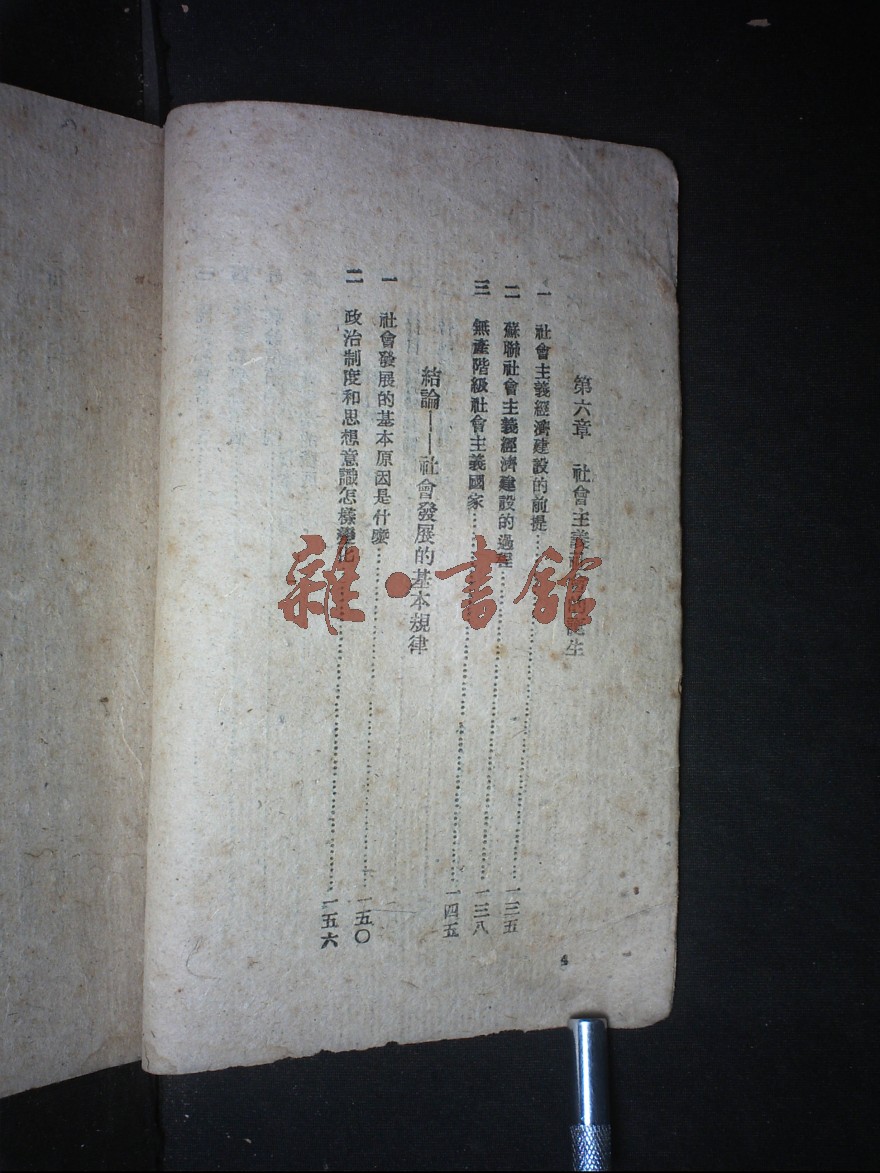 第六章 社會主義社會的誕生
一 社會主義經濟建設的前提……一三五
二 蘇聯社會主義經濟建設的過程……一三八
三 無產階級社會主義國家……一四五
結論——社會發展的基本規律
一 社會發展的基本原因是什麼……一五〇
二 政治制度和思想意識怎樣變化……一五六
4
雜·書館